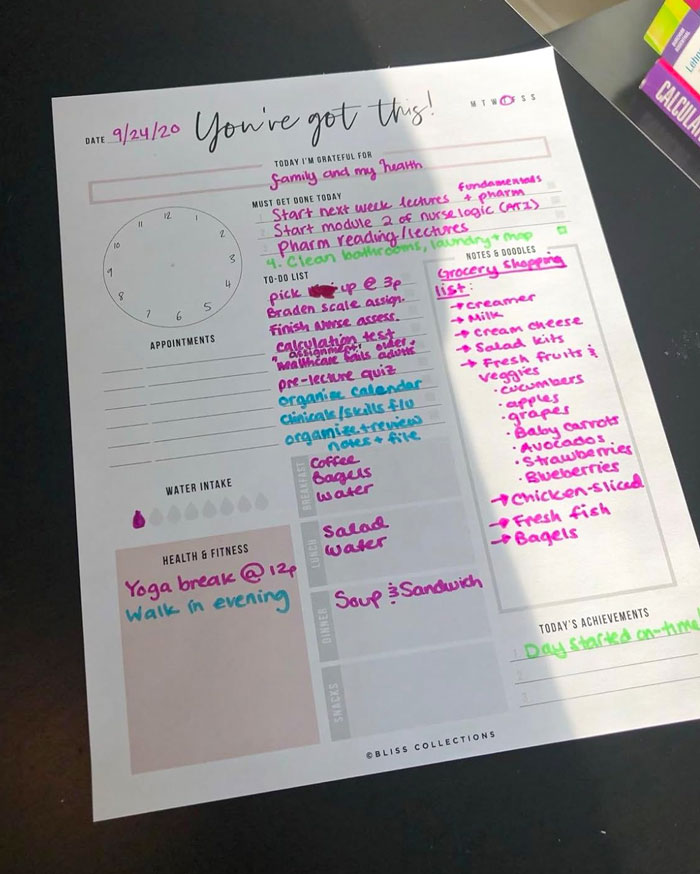 DATE 9/24/20
You've got this!
M T W T F S S
TODAY I'M GRATEFUL FOR
family and my health
MUST GET DONE TODAY
fundamentals
1 Start next week lectures + pharm
2 Start module 2 of nurse logic (ATI)
3 Pharm reading/lectures
4. Clean bathrooms, laundry + mop
12
1
2
3
4
5
6
7
8
9
10
11
APPOINTMENTS
TO-DO LIST
pick up @ 3p
Braden scale assign.
Finish Norse assess.
calculation test
" assignment, older +
Healthcare fails adults
pre-lecture quiz
organize calendar
clinicals/skills flu
organize + review
notes + file
NOTES & DOODLES
Grocery shopping
list:
→ creamer
→ Milk
→ Cream cheese
→ Salad kits
→ Fresh fruits &
veggies
• cucumbers
• apples
• grapes
• Baby carrots
• Avocados
• Strawberries
• Blueberries
→ Chicken-Sliced
→ Fresh fish
→ Bagels
WATER INTAKE
HEALTH & FITNESS
Yoga break @ 12p
Walk in evening
BREAKFAST
Coffee
Bagels
Water
LUNCH
Salad
Water
DINNER
Soup & Sandwich
SNACKS
TODAY'S ACHIEVEMENTS
1 Day started on-time
2
3
©BLISS COLLECTIONS
CALCULA
Lehn